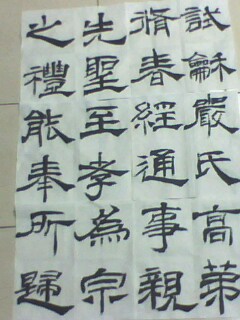 試龢嚴氏高第
脩春經通事親
先聖至孝為宗
之禮能奉所歸